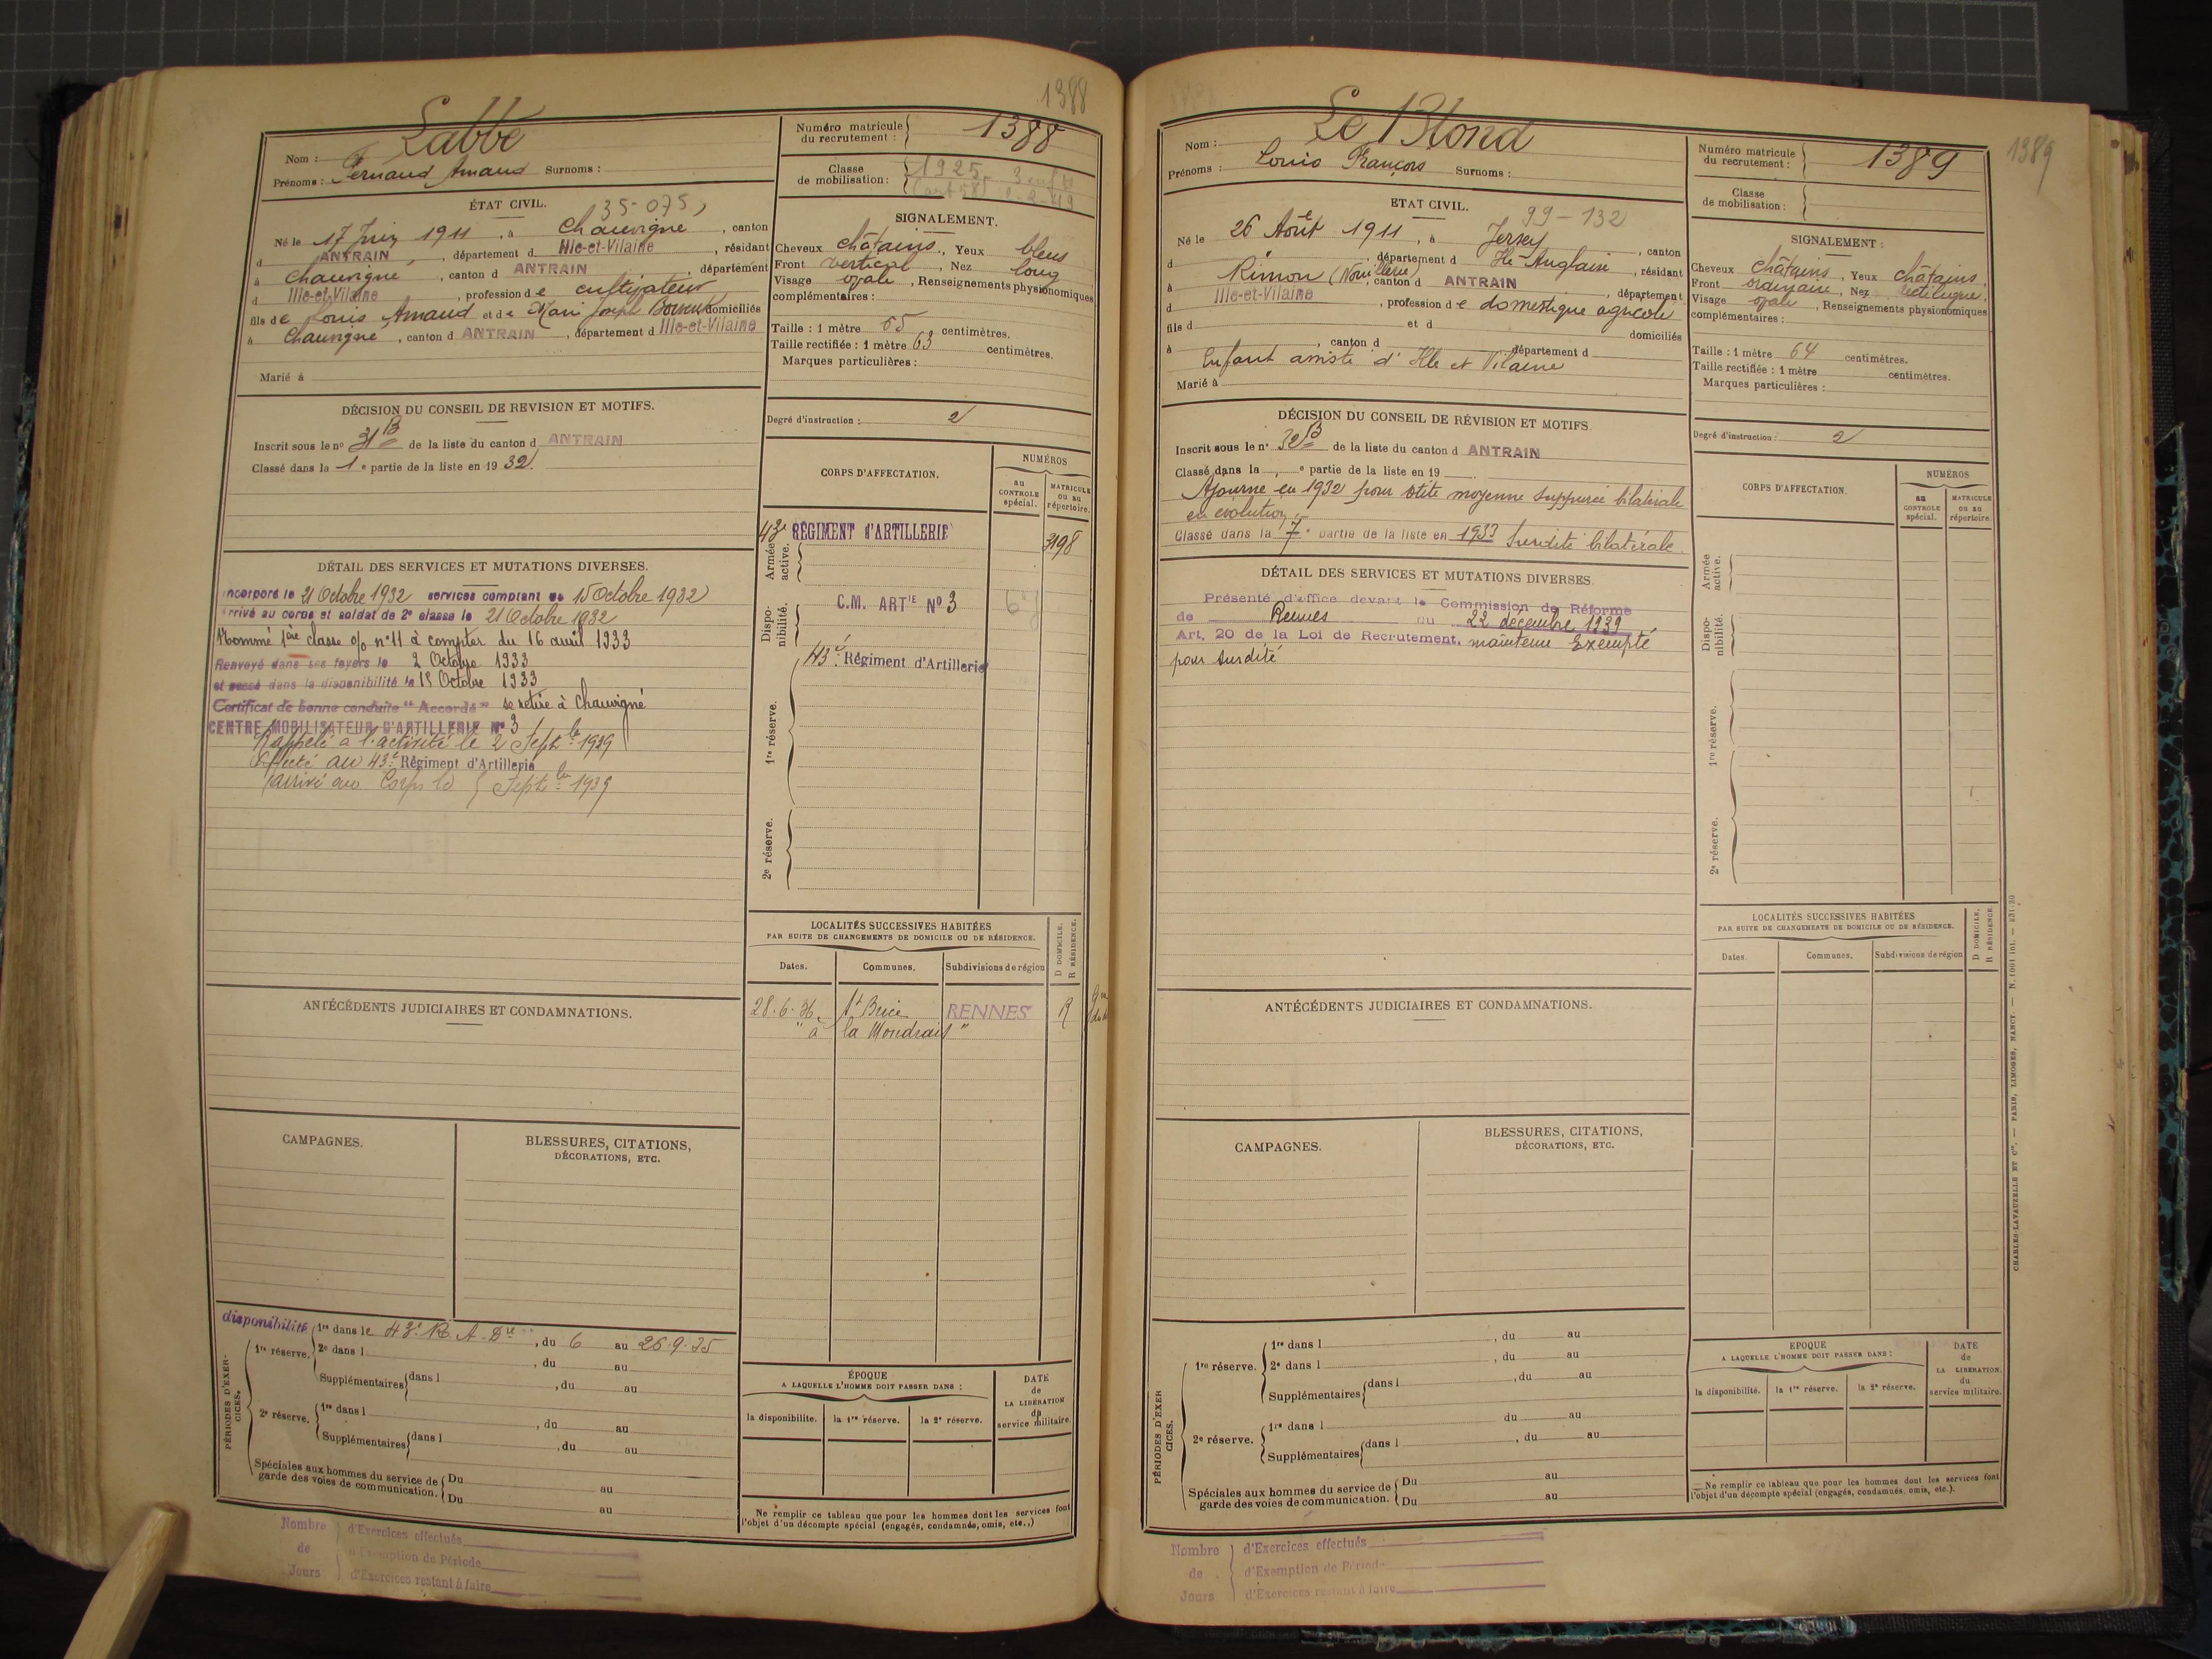 1388
Nom : Labbé
Prénoms : Fernand Amand Surnoms :
Numéro matricule du recrutement : 1388
Classe de mobilisation : 1925 3 enf
ÉTAT CIVIL. 35-075
Né le 17 Juin 1911, à Chauvigné, canton
d ANTRAIN, département d Ille-et-Vilaine, résidant
à Chauvigné, canton d ANTRAIN, département
d Ille-et-Vilaine, profession de cultivateur
fils de Louis Amand et de Marie Joseph domiciliés
à Chauvigné, canton d ANTRAIN, département d Ille-et-Vilaine
Marié à
SIGNALEMENT.
Cheveux châtains, Yeux bleus
Front vertical, Nez long
Visage ovale, Renseignements physionomiques
complémentaires :
Taille : 1 mètre 65 centimètres.
Taille rectifiée : 1 mètre 63 centimètres.
Marques particulières :
Degré d'instruction : 2
DÉCISION DU CONSEIL DE REVISION ET MOTIFS.
Inscrit sous le n° 31 B de la liste du canton d ANTRAIN
Classé dans la 1e partie de la liste en 1932.
CORPS D'AFFECTATION.
NUMÉROS
au CONTROLE spécial.
MATRICULE ou au répertoire.
Armée active.
43e RÉGIMENT d'ARTILLERIE 3198
Disponibilité.
C.M. ARTIE N° 3
1re réserve.
43e Régiment d'Artillerie
2e réserve.
DÉTAIL DES SERVICES ET MUTATIONS DIVERSES.
Incorporé le 21 Octobre 1932 services comptant du 15 Octobre 1932
Arrivé au corps et soldat de 2e classe le 21 Octobre 1932
Nommé 1ère classe o/o n° 11 à compter du 16 avril 1933
Renvoyé dans ses foyers le 2 Octobre 1933
et passé dans la disponibilité le 15 Octobre 1933
Certificat de bonne conduite "Accordé" se retire à Chauvigné
CENTRE MOBILISATEUR D'ARTILLERIE N° 3
Rappelé à l'activité le 2 Septbre 1939
Affecté au 43e Régiment d'Artillerie
arrivé au Corps le Septbre 1939
LOCALITÉS SUCCESSIVES HABITÉES
PAR SUITE DE CHANGEMENTS DE DOMICILE OU DE RÉSIDENCE.
D DOMICILE. R RÉSIDENCE.
Dates. Communes. Subdivisions de région
28.6.36 St Brice RENNES R
" à la Mondrais "
ANTÉCÉDENTS JUDICIAIRES ET CONDAMNATIONS.
CAMPAGNES.
BLESSURES, CITATIONS,
DÉCORATIONS, ETC.
PÉRIODES D'EXERCICES.
disponibilité
1re réserve.
1re dans le 43e R.A.Dre, du 6 au 26.9.35
2e dans l , du au
Supplémentaires dans l , du au
2e réserve.
1re dans l , du au
Supplémentaires dans l , du au
Spéciales aux hommes du service de garde des voies de communication.
Du au
Du au
ÉPOQUE
A LAQUELLE L'HOMME DOIT PASSER DANS :
la disponibilité. la 1re réserve. la 2e réserve.
DATE de LA LIBÉRATION du service militaire.
Ne remplir ce tableau que pour les hommes dont les services font
l'objet d'un décompte spécial (engagés, condamnés, omis, etc.,)
Nombre de Jours
d'Exercices effectués
d'Exemption de Période
d'Exercices restant à faire
1389
Nom : Le Blond
Prénoms : Louis François Surnoms :
Numéro matricule du recrutement : 1389
Classe de mobilisation :
ETAT CIVIL. 99-132
Né le 26 Août 1911, à Jersey, canton
d , département d Ile Anglaise, résidant
à Rimou, canton d ANTRAIN, département
d Ille-et-Vilaine, profession de domestique agricole
fils d et d domiciliés
à , canton d département d
Enfant assisté d'Ille et Vilaine
Marié à
SIGNALEMENT :
Cheveux châtains, Yeux châtains.
Front ordinaire, Nez rectiligne.
Visage ovale, Renseignements physionomiques
complémentaires :
Taille : 1 mètre 64 centimètres.
Taille rectifiée : 1 mètre centimètres.
Marques particulières :
Degré d'instruction : 2
DÉCISION DU CONSEIL DE RÉVISION ET MOTIFS.
Inscrit sous le n° 32 B de la liste du canton d ANTRAIN
Classé dans la e partie de la liste en 19
Ajourné en 1932 pour otite moyenne suppurée bilatérale
en évolution.
Classé dans la 7e partie de la liste en 1933 Surdité bilatérale.
CORPS D'AFFECTATION.
NUMÉROS
au CONTROLE spécial.
MATRICULE ou au répertoire.
Armée active.
Disponibilité.
1re réserve.
2e réserve.
DÉTAIL DES SERVICES ET MUTATIONS DIVERSES.
Présenté d'office devant la Commission de Réforme
de Rennes du 22 décembre 1939
Art. 20 de la Loi de Recrutement, maintenu Exempté
pour surdité
LOCALITÉS SUCCESSIVES HABITÉES
PAR SUITE DE CHANGEMENTS DE DOMICILE OU DE RÉSIDENCE.
D DOMICILE. R RÉSIDENCE.
Dates. Communes. Subdivisions de région
ANTÉCÉDENTS JUDICIAIRES ET CONDAMNATIONS.
CAMPAGNES.
BLESSURES, CITATIONS,
DÉCORATIONS, ETC.
PÉRIODES D'EXERCICES.
1re réserve.
1re dans l , du au
2e dans l , du au
Supplémentaires dans l , du au
2e réserve.
1re dans l du au
Supplémentaires dans l , du au
Spéciales aux hommes du service de garde des voies de communication.
Du au
Du au
EPOQUE
A LAQUELLE L'HOMME DOIT PASSER DANS :
la disponibilité. la 1re réserve. la 2e réserve.
DATE de LA LIBÉRATION du service militaire.
Ne remplir ce tableau que pour les hommes dont les services font
l'objet d'un décompte spécial (engagés, condamnés, omis, etc.).
Nombre de Jours
d'Exercices effectués
d'Exemption de Période
d'Exercices restant à faire
CHARLES-LAVAUZELLE ET Cie. — PARIS, LIMOGES, NANCY. — N. 1001 int. — 831-30